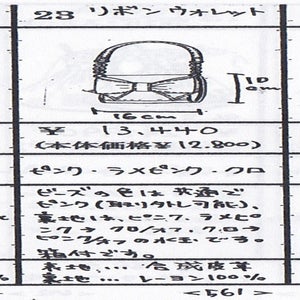 23 リボンウォレット
10cm
16cm
¥ 13,440
(本体価格¥12,800)
ピンク・ラメピンク・クロ
ビーズの色は共通で
ピンク(取りはずし可能)、
裏地は、ピンク、ラメピ
ンク→クロ/オフ、クロ→
ピンク/オフの水玉です。
箱付です。
表地… 合成皮革
裏地… レーヨン100%
<561>